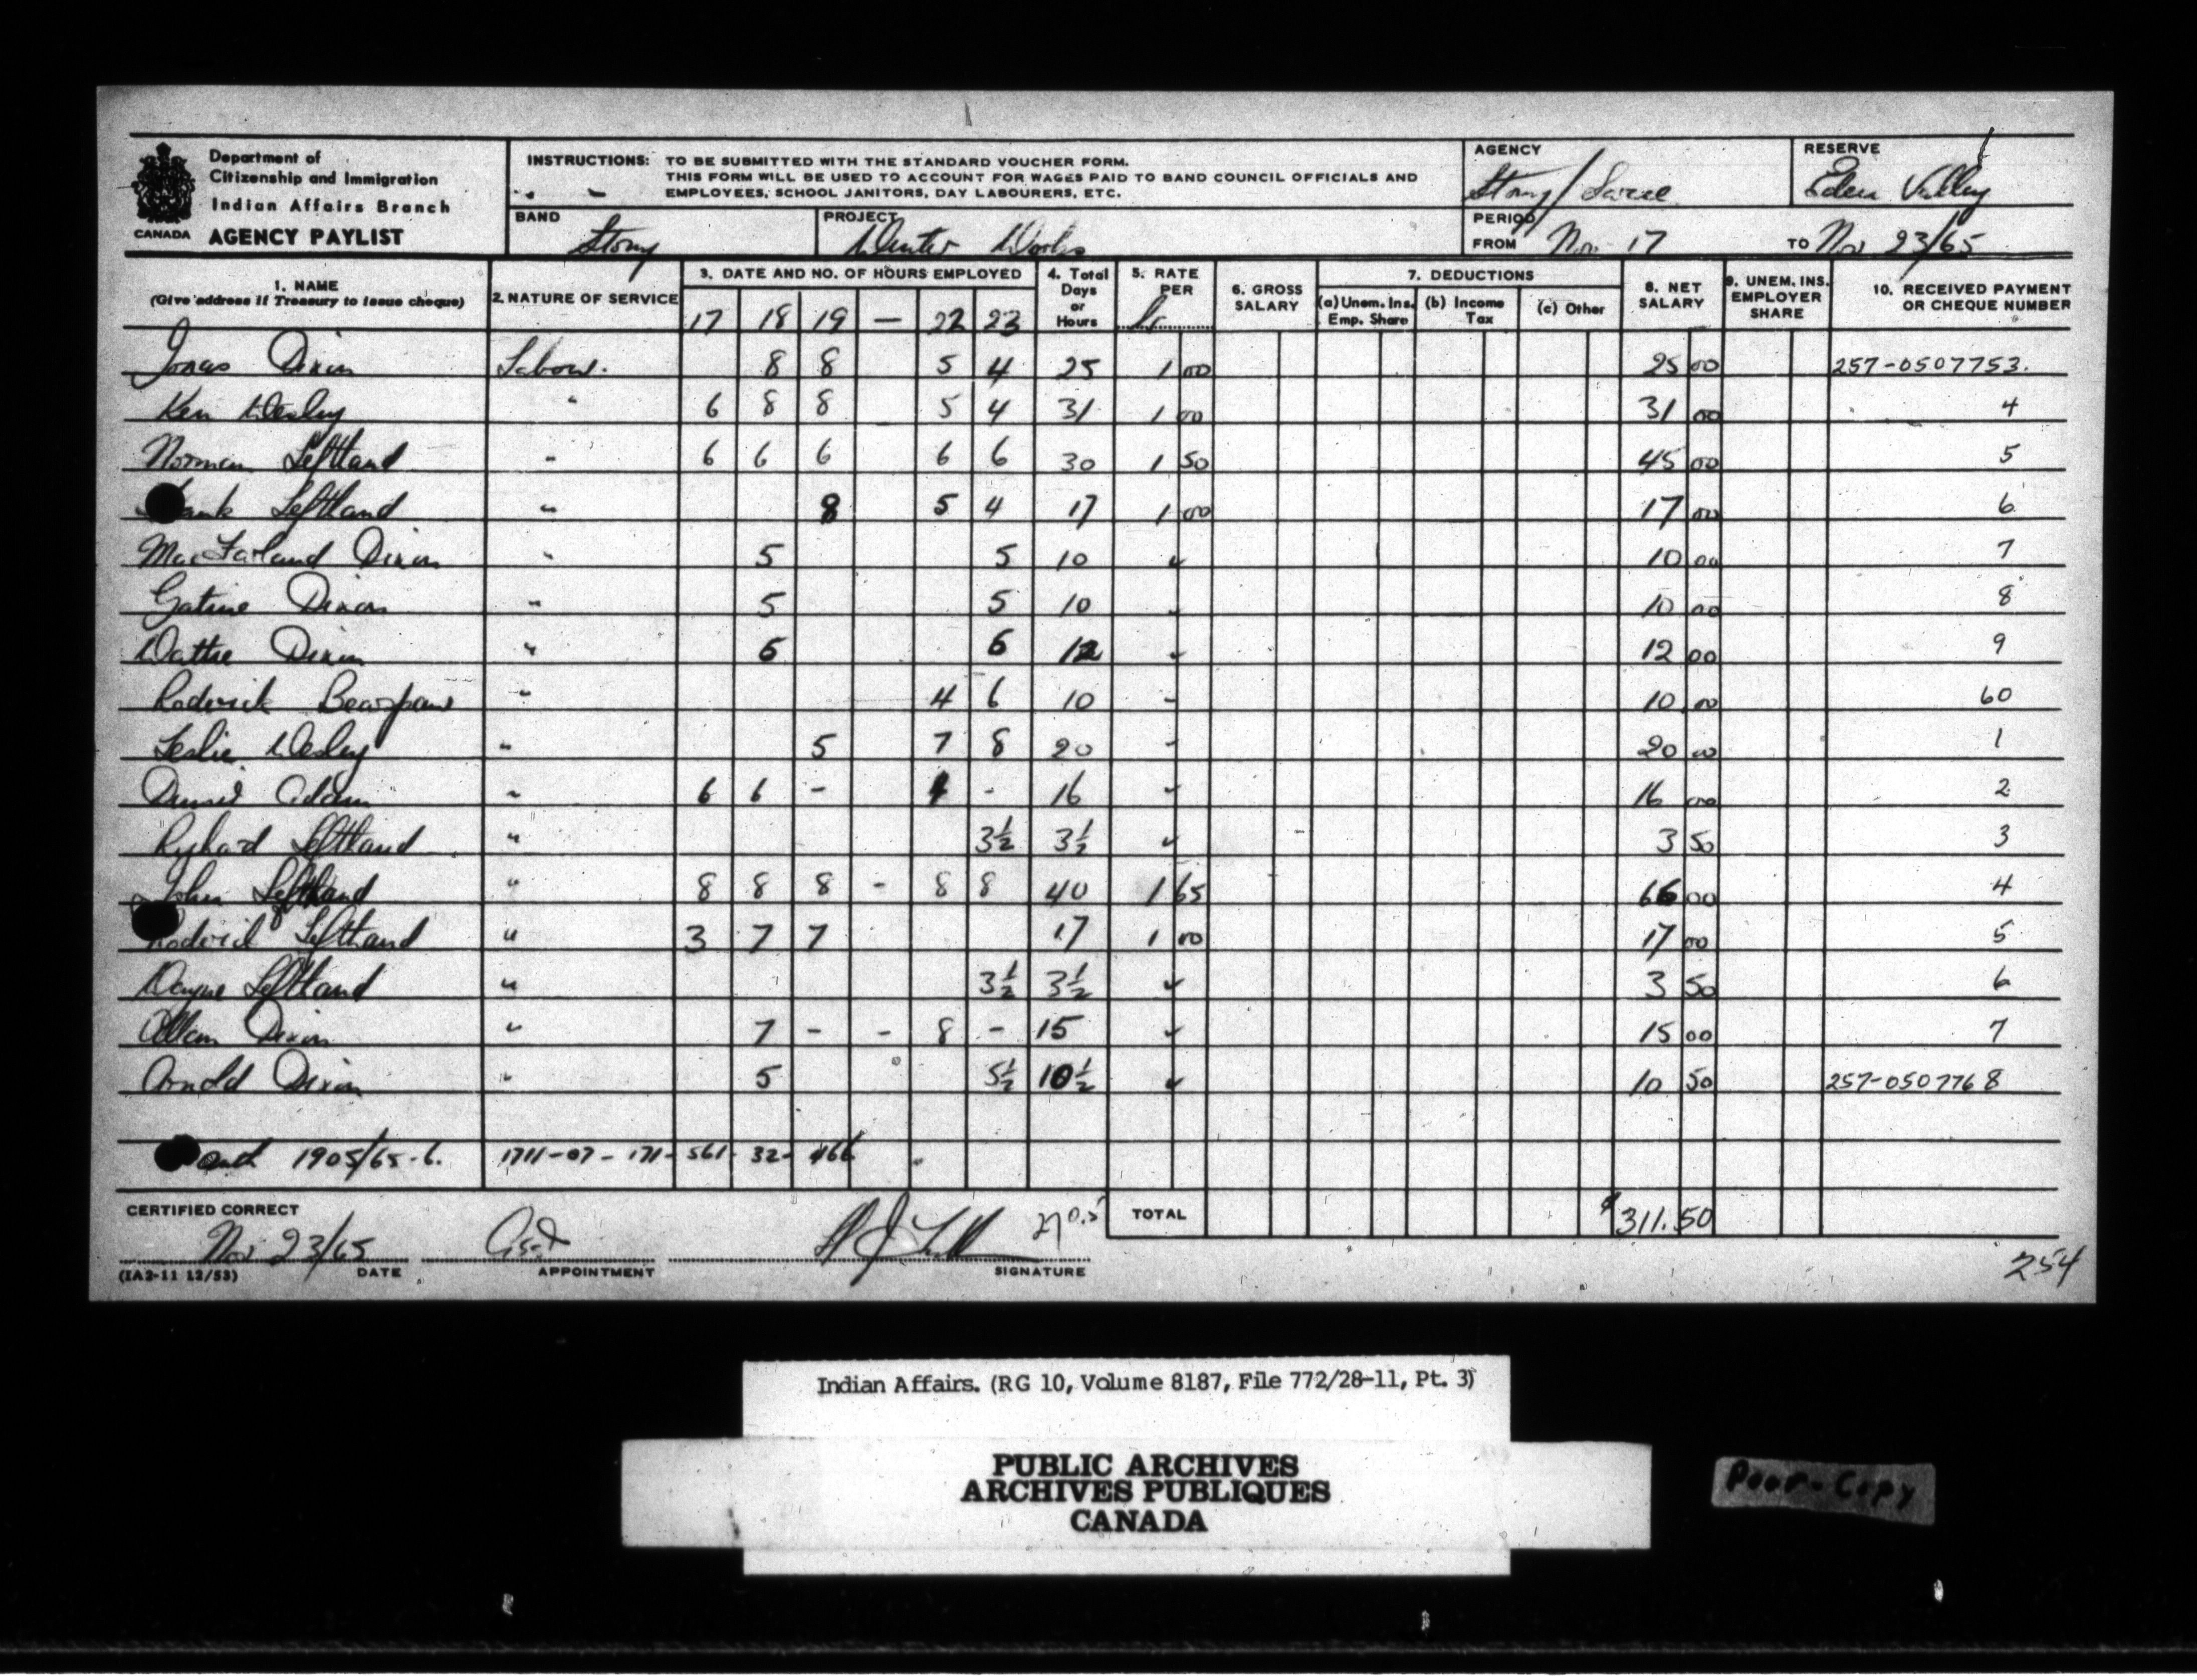 Department of
Citizenship and Immigration
Indian Affairs Branch
CANADA AGENCY PAYLIST
INSTRUCTIONS: TO BE SUBMITTED WITH THE STANDARD VOUCHER FORM.
THIS FORM WILL BE USED TO ACCOUNT FOR WAGES PAID TO BAND COUNCIL OFFICIALS AND
EMPLOYEES, SCHOOL JANITORS, DAY LABOURERS, ETC.
AGENCY Stony/Sarcee
RESERVE Eden Valley
BAND Stony
PROJECT Winter Works
PERIOD FROM Nov. 17 TO Nov 23/65
1. NAME (Give address if Treasury to issue cheque)
2. NATURE OF SERVICE
3. DATE AND NO. OF HOURS EMPLOYED
17 18 19 — 22 23
4. Total Days or Hours
5. RATE PER
6. GROSS SALARY
7. DEDUCTIONS
(a) Unem. Ins. Emp. Share (b) Income Tax (c) Other
8. NET SALARY
9. UNEM. INS. EMPLOYER SHARE
10. RECEIVED PAYMENT OR CHEQUE NUMBER
Jonas Dixon Labour. 8 8 5 4 25 1 00 25 00 257-0507753.
Ken Wesley " 6 8 8 5 4 31 1 00 31 00 4
Norman Lefthand " 6 6 6 6 6 30 1 50 45 00 5
Lefthand " 8 5 4 17 1 00 17 00 6
MacFarland Dixon " 5 5 10 " 10 00 7
Gatine Dixon " 5 5 10 " 10 00 8
Wattie Dixon " 6 6 12 " 12 00 9
Roderick Bearspaw " 4 6 10 " 10 00 60
Leslie Wesley " 5 7 8 20 " 20 00 1
Adam " 6 6 - 4 - 16 " 16 00 2
Rychard Lefthand " 3½ 3½ " 3 50 3
John Lefthand " 8 8 8 - 8 8 40 1 65 66 00 4
Roderick Lefthand " 3 7 7 17 1 00 17 00 5
Wayne Lefthand " 3½ 3½ " 3 50 6
Allan Dixon " 7 - - 8 - 15 " 15 00 7
Arnold Dixon " 5 5½ 10½ " 10 50 257-0507768
1905/65-6. 1711-07-171-561-32-466
CERTIFIED CORRECT
Nov 23/65 Asst 270.5 TOTAL $311.50
(IA2-11 12/53) DATE APPOINTMENT SIGNATURE
254
Indian Affairs. (RG 10, Volume 8187, File 772/28-11, Pt. 3)
PUBLIC ARCHIVES
ARCHIVES PUBLIQUES
CANADA
Poor-Copy